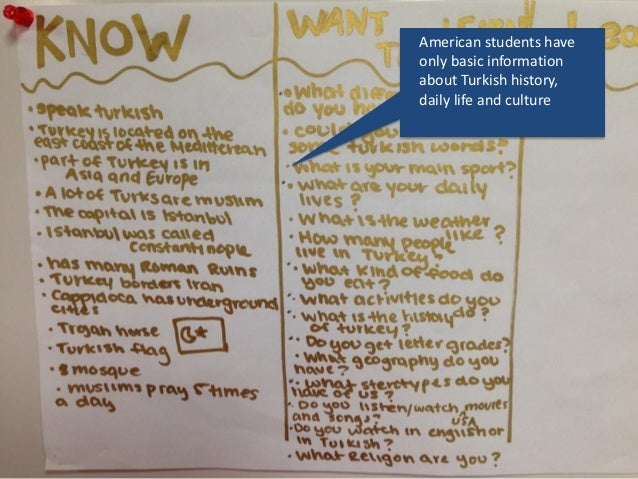 KNOW
• speak turkish
• Turkey is located on the
east coast of the Mediterean
• part of Turkey is in
Asia and Europe
• A lot of Turks are muslim
• The capital is Istanbul
• Istanbul was called
Constantinople
• has many Roman Ruins
• Turkey borders Iran
• Cappidoca has underground
cities
• Trojan horse
• Turkish flag
• mosque
• muslims pray 5 times
a day
WANT
• What
do you
• could you
some turkish words?
• What is your main sport?
• what are your daily
lives?
• What is the weather
like?
• How many people
live in Turkey?
• What kind of food do
you eat?
• What activities do you
do?
• What is the history
of turkey?
• Do you get letter grades?
• What geography do you
have?
• What sterotypes do you
have of us?
• Do you listen/watch movies
and songs? USA
• Do you watch in english or
in Turkish?
• What Religon are you?
American students have
only basic information
about Turkish history,
daily life and culture